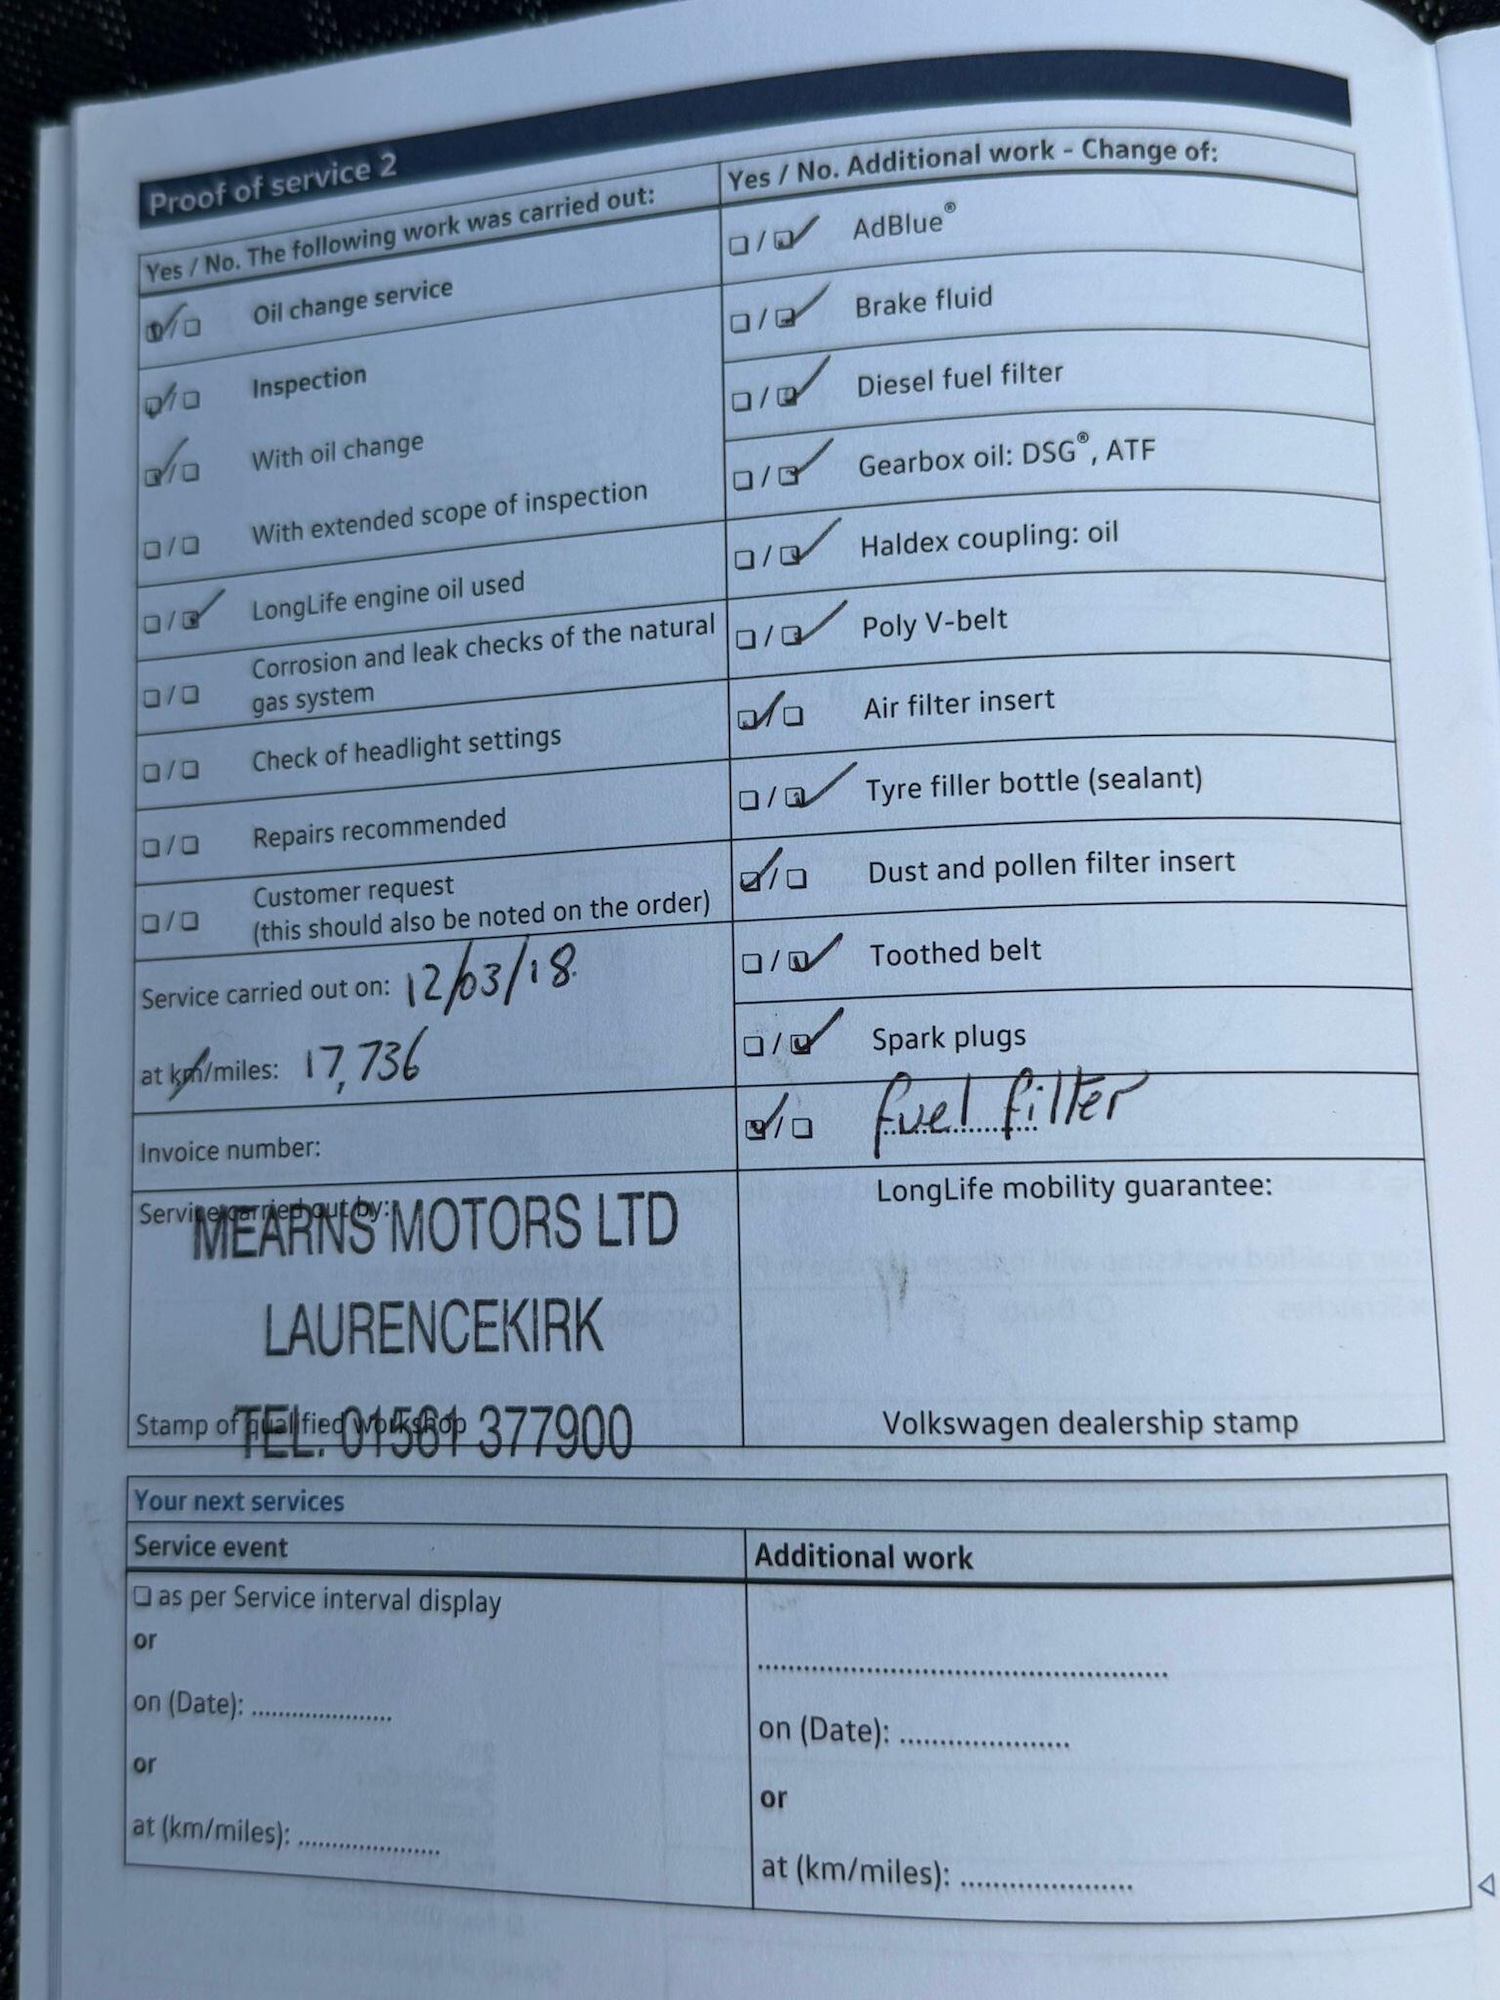 Proof of service 2
Yes / No. The following work was carried out:
Oil change service
Inspection
With oil change
With extended scope of inspection
LongLife engine oil used
Corrosion and leak checks of the natural
gas system
Check of headlight settings
Repairs recommended
Customer request
(this should also be noted on the order)
Service carried out on: 12/03/18.
at km/miles: 17,736
Invoice number:
Service carried out by:
MEARNS MOTORS LTD
LAURENCEKIRK
TEL: 01561 377900
Stamp of qualified workshop
Yes / No. Additional work - Change of:
AdBlue®
Brake fluid
Diesel fuel filter
Gearbox oil: DSG®, ATF
Haldex coupling: oil
Poly V-belt
Air filter insert
Tyre filler bottle (sealant)
Dust and pollen filter insert
Toothed belt
Spark plugs
fuel filter
LongLife mobility guarantee:
Volkswagen dealership stamp
Your next services
Service event
as per Service interval display
or
on (Date): .....................
or
at (km/miles): .....................
Additional work
on (Date): .....................
or
at (km/miles): .....................